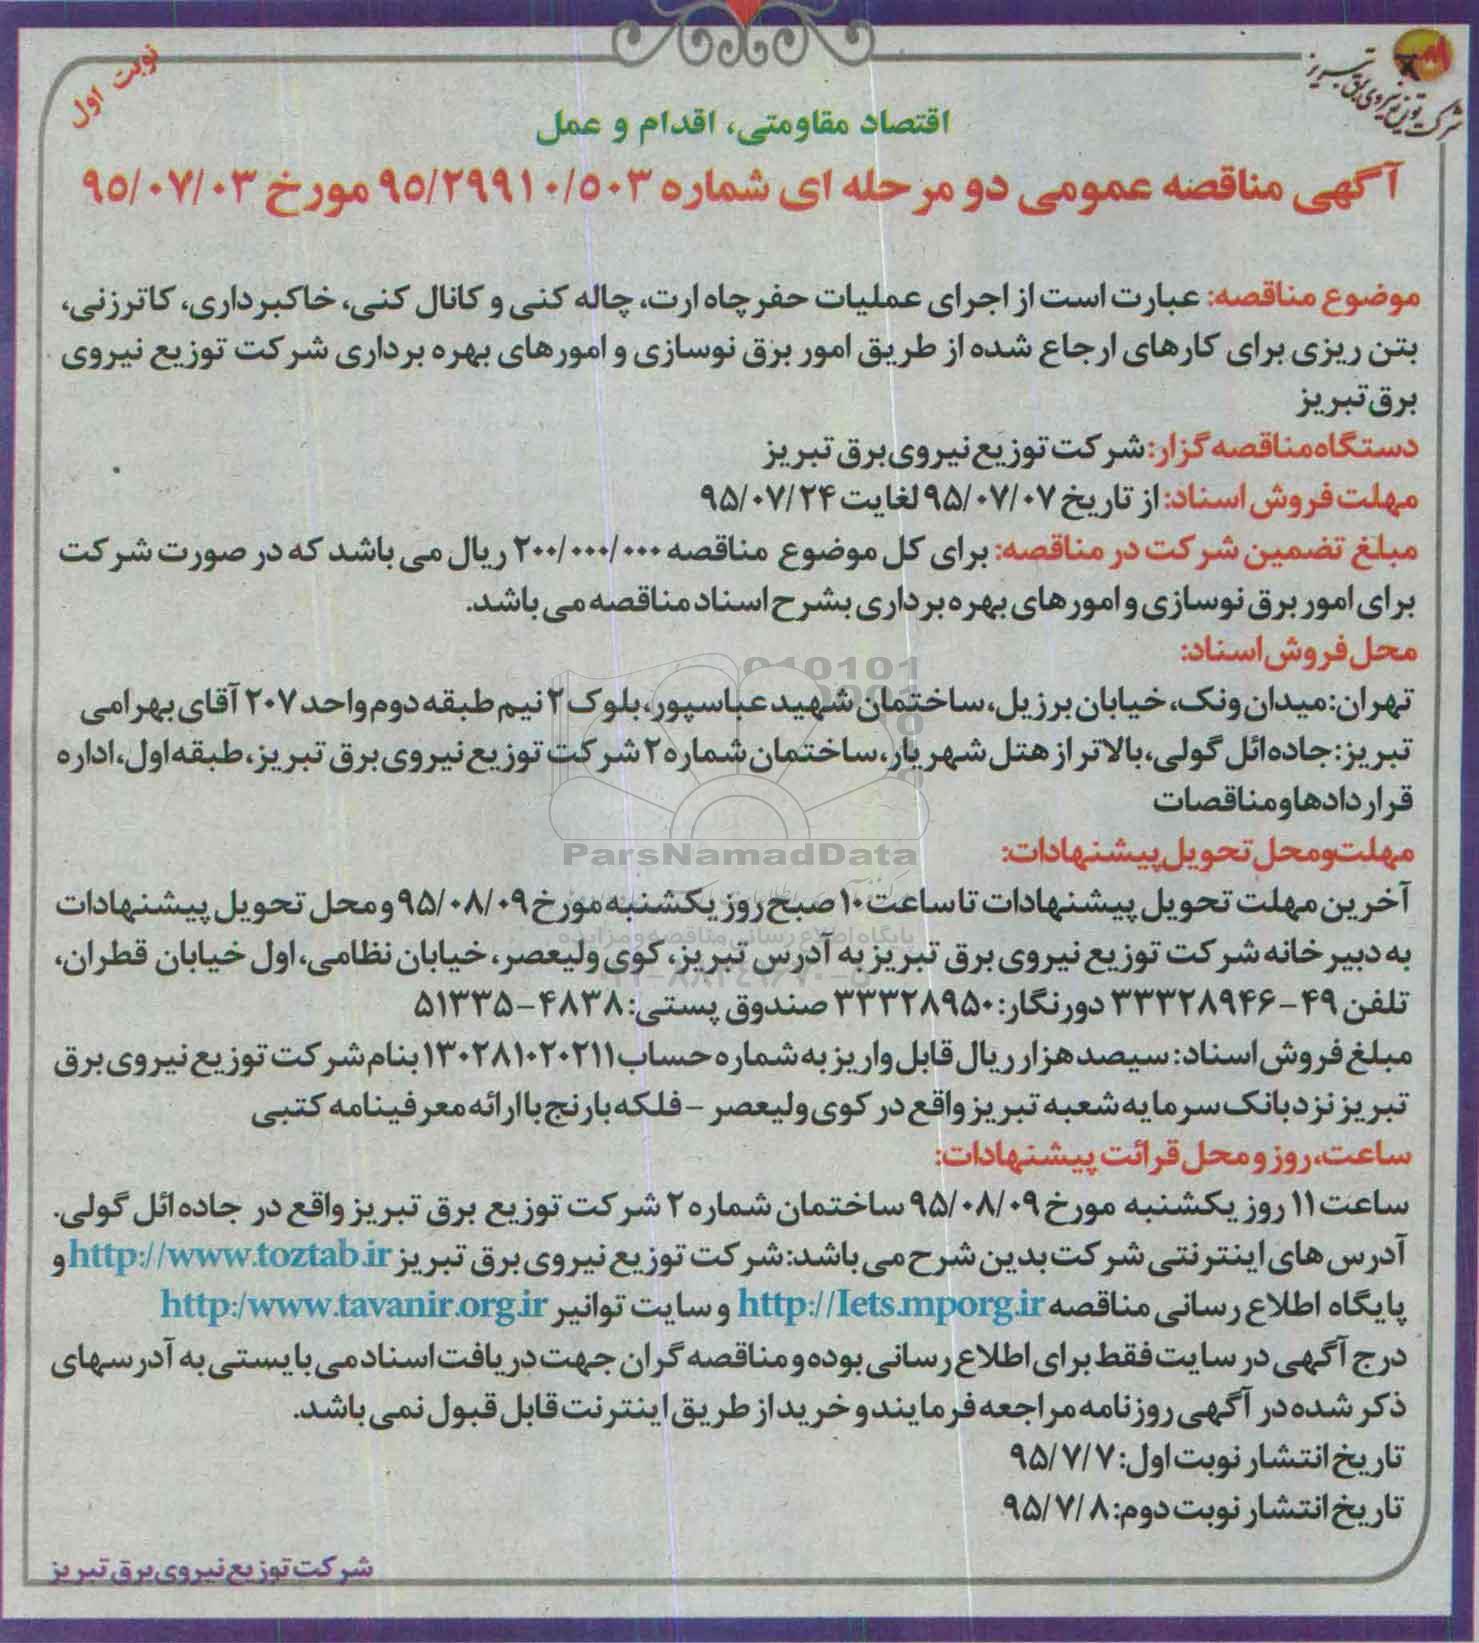 شرکت توزیع نیروی برق تبریز
نوبت اول
اقتصاد مقاومتی، اقدام و عمل
آگهی مناقصه عمومی دو مرحله ای شماره ۹۵/۲۹۹۱۰/۵۰۳ مورخ ۹۵/۰۷/۰۳
موضوع مناقصه: عبارت است از اجرای عملیات حفر چاه ارت، چاله کنی و کانال کنی، خاکبرداری، کاترزنی،
بتن ریزی برای کارهای ارجاع شده از طریق امور برق نوسازی و امورهای بهره برداری شرکت توزیع نیروی
برق تبریز
دستگاه مناقصه گزار: شرکت توزیع نیروی برق تبریز
مهلت فروش اسناد: از تاریخ ۹۵/۰۷/۰۷ لغایت ۹۵/۰۷/۲۴
مبلغ تضمین شرکت در مناقصه: برای کل موضوع مناقصه ۲۰۰/۰۰۰/۰۰۰ ریال می باشد که در صورت شرکت
برای امور برق نوسازی و امورهای بهره برداری بشرح اسناد مناقصه می باشد.
محل فروش اسناد:
تهران: میدان ونک، خیابان برزیل، ساختمان شهید عباسپور، بلوک ۲ نیم طبقه دوم واحد ۲۰۷ آقای بهرامی
تبریز: جاده ائل گولی، بالاتر از هتل شهریار، ساختمان شماره ۲ شرکت توزیع نیروی برق تبریز، طبقه اول، اداره
قراردادها و مناقصات
ParsNamadData
مهلت و محل تحویل پیشنهادات:
آخرین مهلت تحویل پیشنهادات تا ساعت ۱۰ صبح روز یکشنبه مورخ ۹۵/۰۸/۰۹ و محل تحویل پیشنهادات
پایگاه اطلاع رسانی مناقصه و مزایده
به دبیر خانه شرکت توزیع نیروی برق تبریز به آدرس تبریز، کوی ولیعصر، خیابان نظامی، اول خیابان قطران،
تلفن ۴۹-۳۳۳۲۸۹۴۶ دورنگار: ۳۳۳۲۸۹۵۰ صندوق پستی: ۴۸۳۸-۵۱۳۳۵
مبلغ فروش اسناد: سیصد هزار ریال قابل واریز به شماره حساب ۱۳۰۲۸۱۰۲۰۲۱۱ بنام شرکت توزیع نیروی برق
تبریز نزد بانک سرمایه شعبه تبریز واقع در کوی ولیعصر - فلکه بارنج با ارائه معرفینامه کتبی
ساعت، روز و محل قرائت پیشنهادات:
ساعت ۱۱ روز یکشنبه مورخ ۹۵/۰۸/۰۹ ساختمان شماره ۲ شرکت توزیع برق تبریز واقع در جاده ائل گولی.
آدرس های اینترنتی شرکت بدین شرح می باشد: شرکت توزیع نیروی برق تبریز http://www.toztab.ir و
پایگاه اطلاع رسانی مناقصه http://Iets.mporg.ir و سایت توانیر http:/www.tavanir.org.ir
درج آگهی در سایت فقط برای اطلاع رسانی بوده و مناقصه گران جهت دریافت اسناد می بایستی به آدرسهای
ذکر شده در آگهی روزنامه مراجعه فرمایند و خرید از طریق اینترنت قابل قبول نمی باشد.
تاریخ انتشار نوبت اول: ۹۵/۷/۷
تاریخ انتشار نوبت دوم: ۹۵/۷/۸
شرکت توزیع نیروی برق تبریز